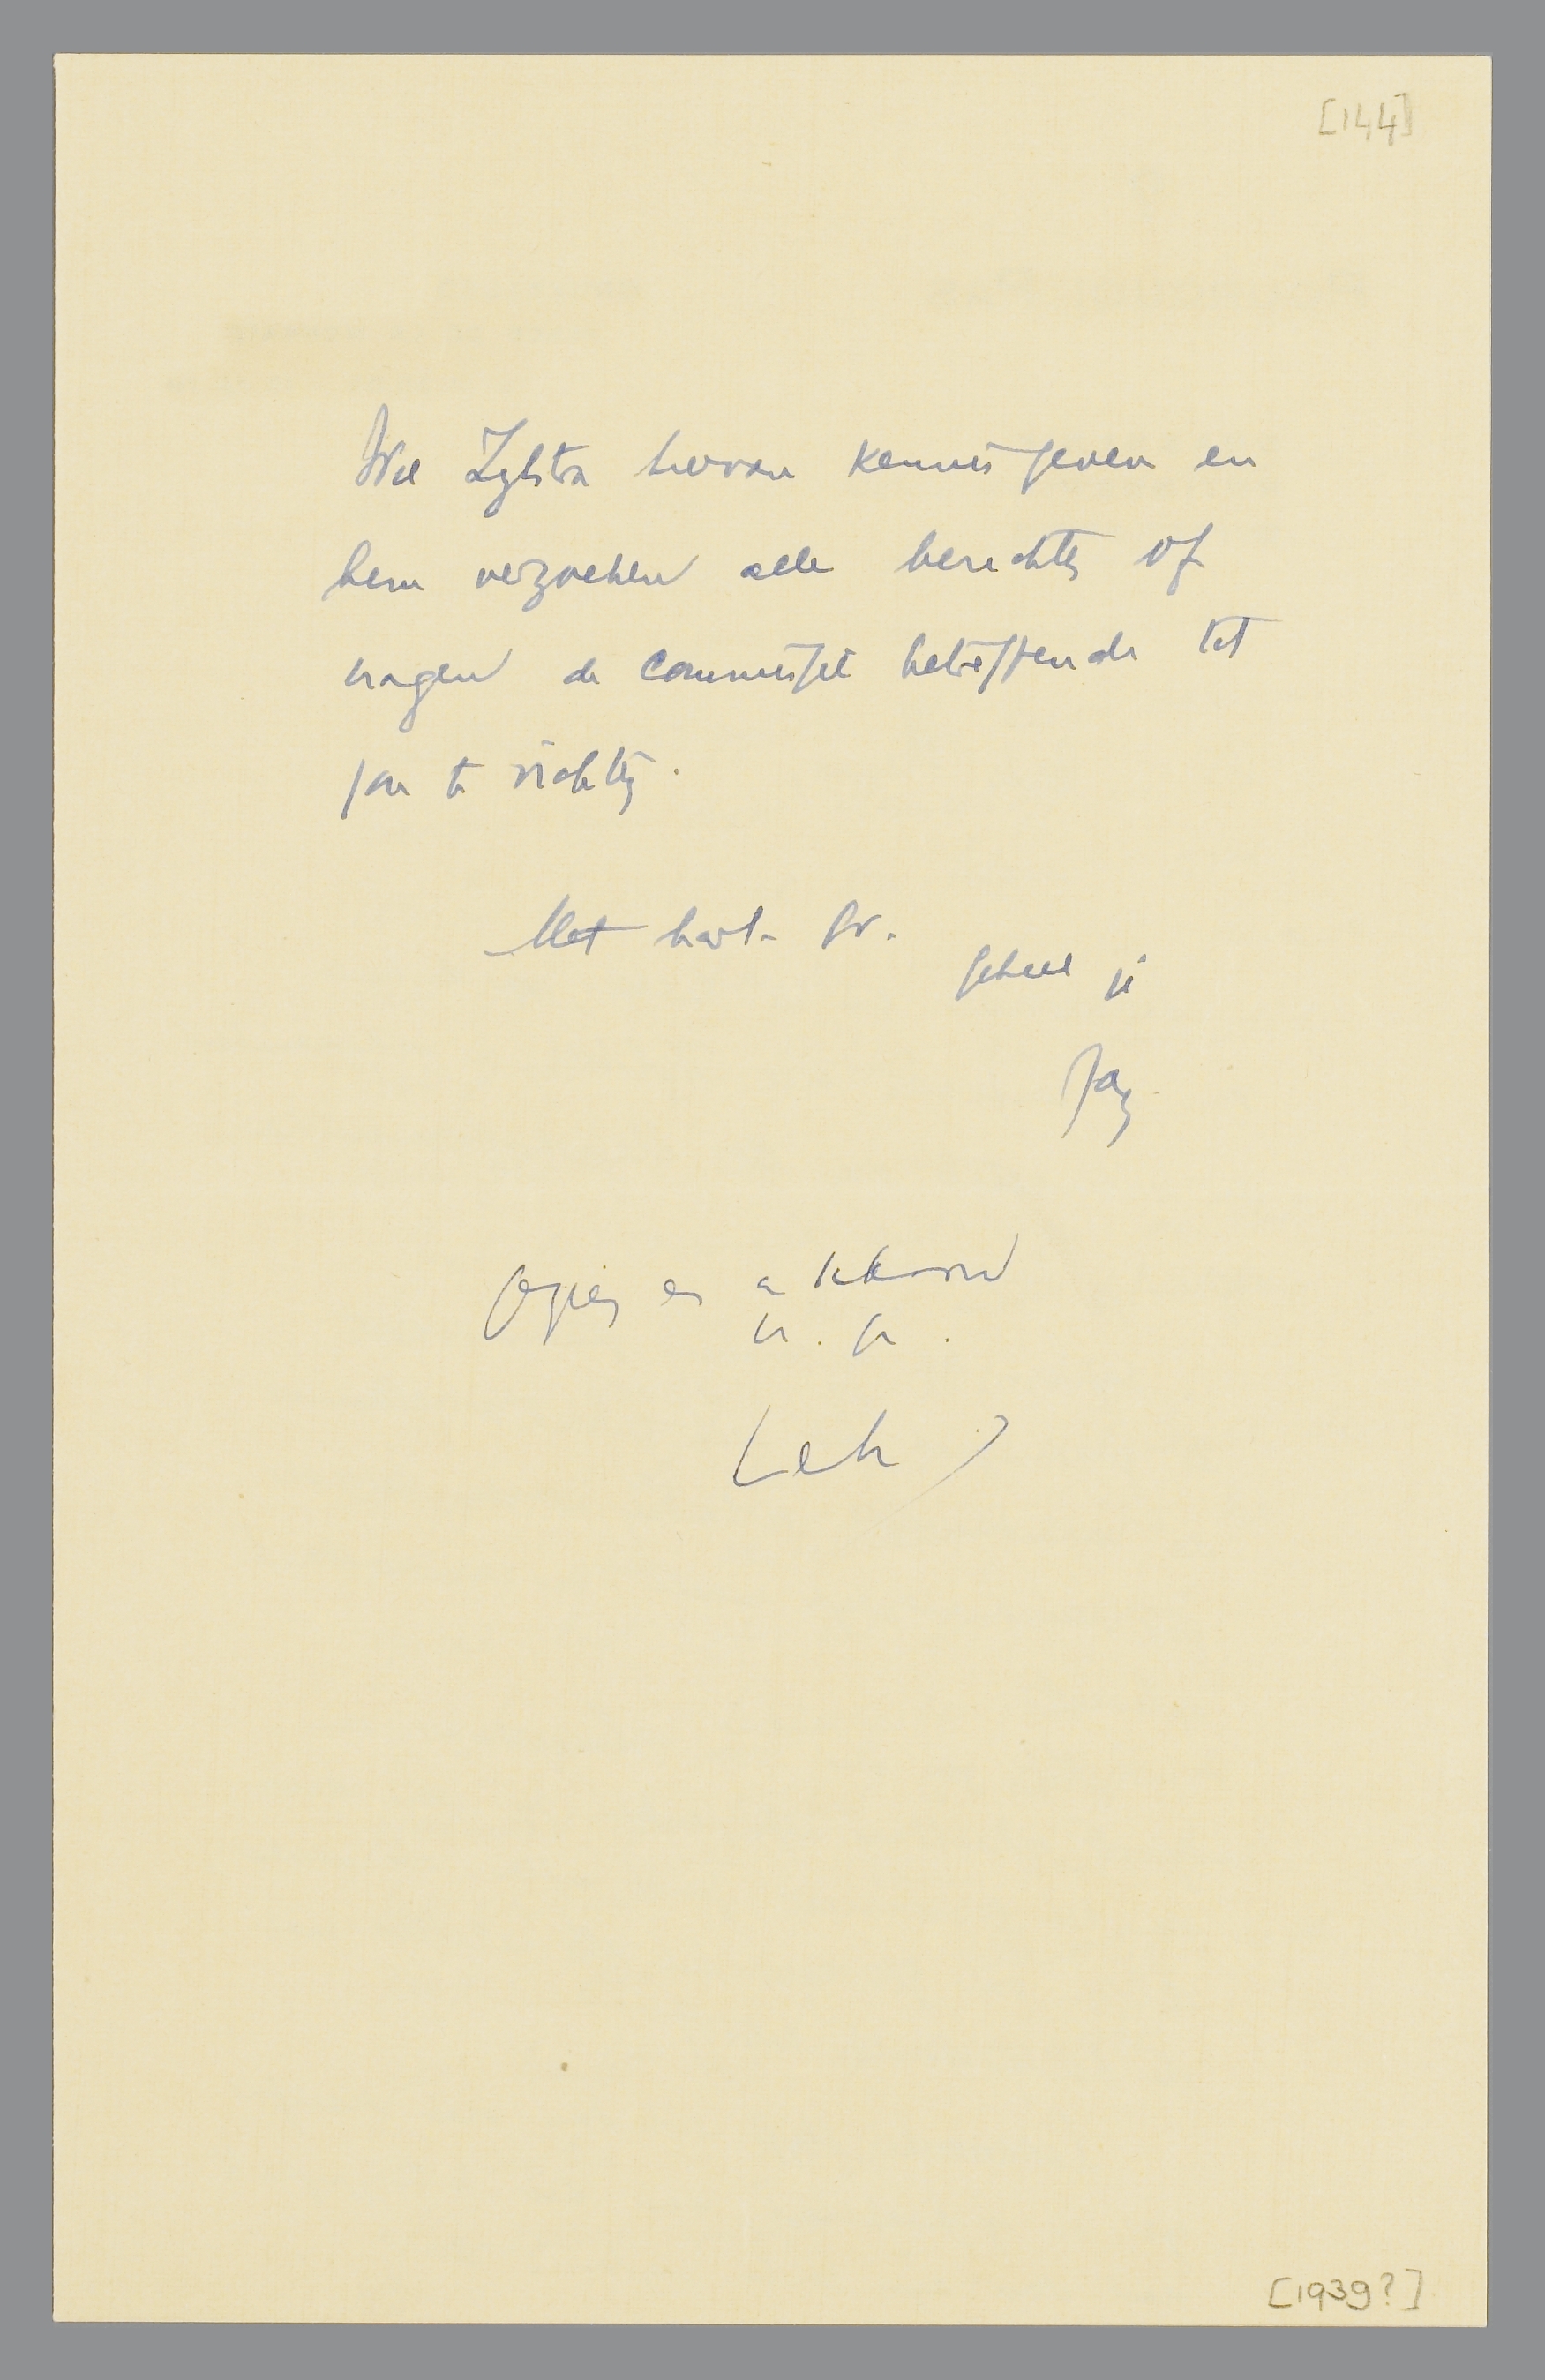 [144]
Wil Zylstra hiervan kennis geven en
hem verzoeken alle berichten of
vragen de commissie betreffende tot
jou te richten.
Met hart. gr.
geheel je
Jan
Gezien en akkoord
h. gr.
[1939?]